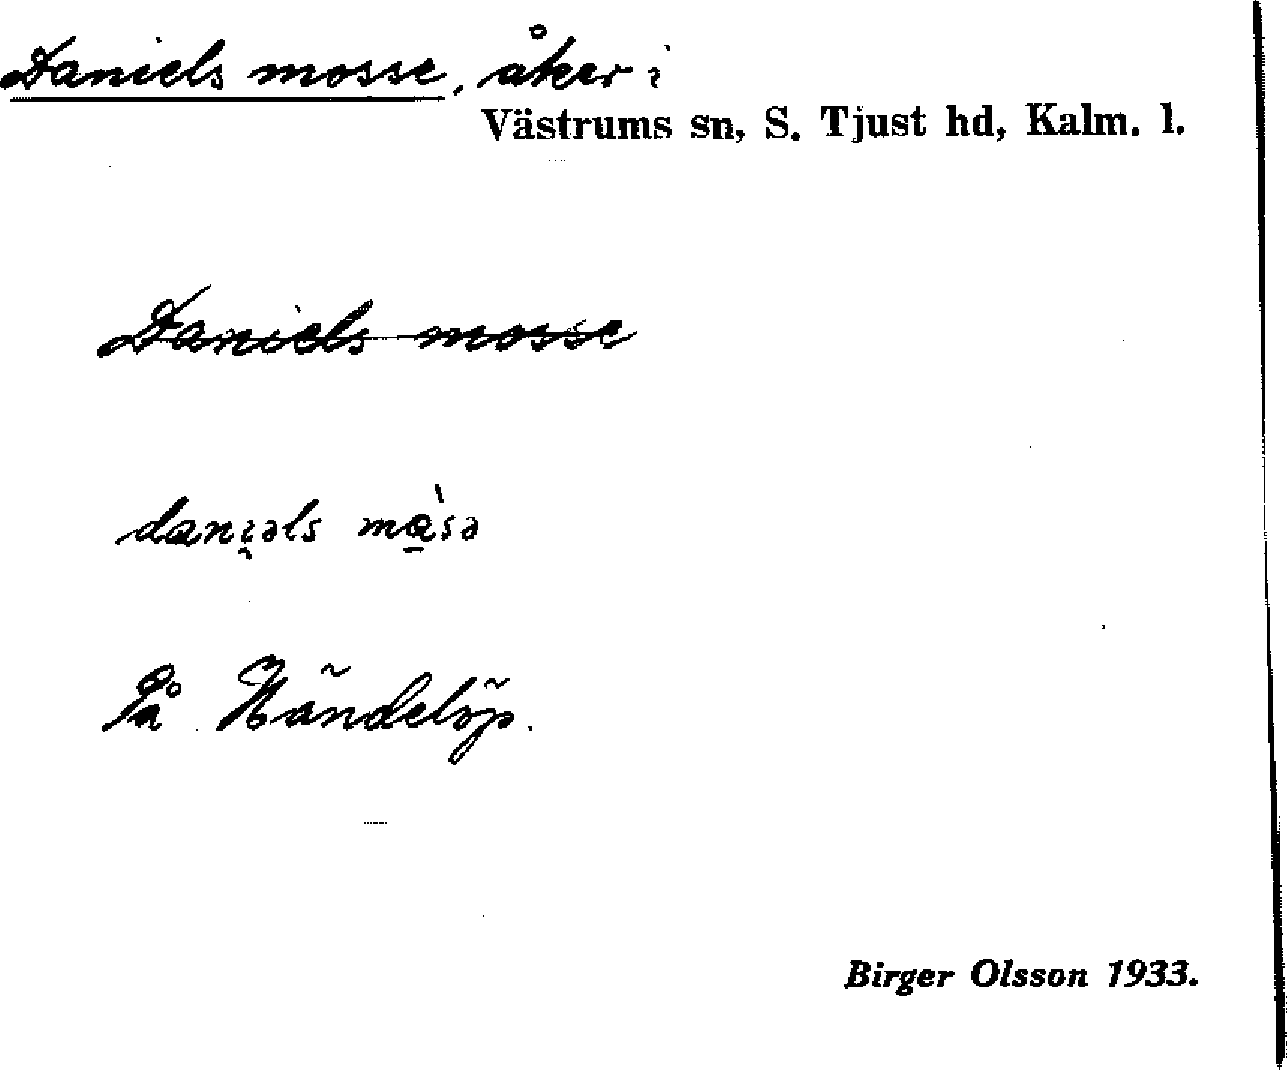 Daniels mosse, åker i
Västrums sn, S. Tjust hd, Kalm. l.
Daniels mosse
dani̯əls mɑ̀sə
På Händelöp.
Birger Olsson 1933.